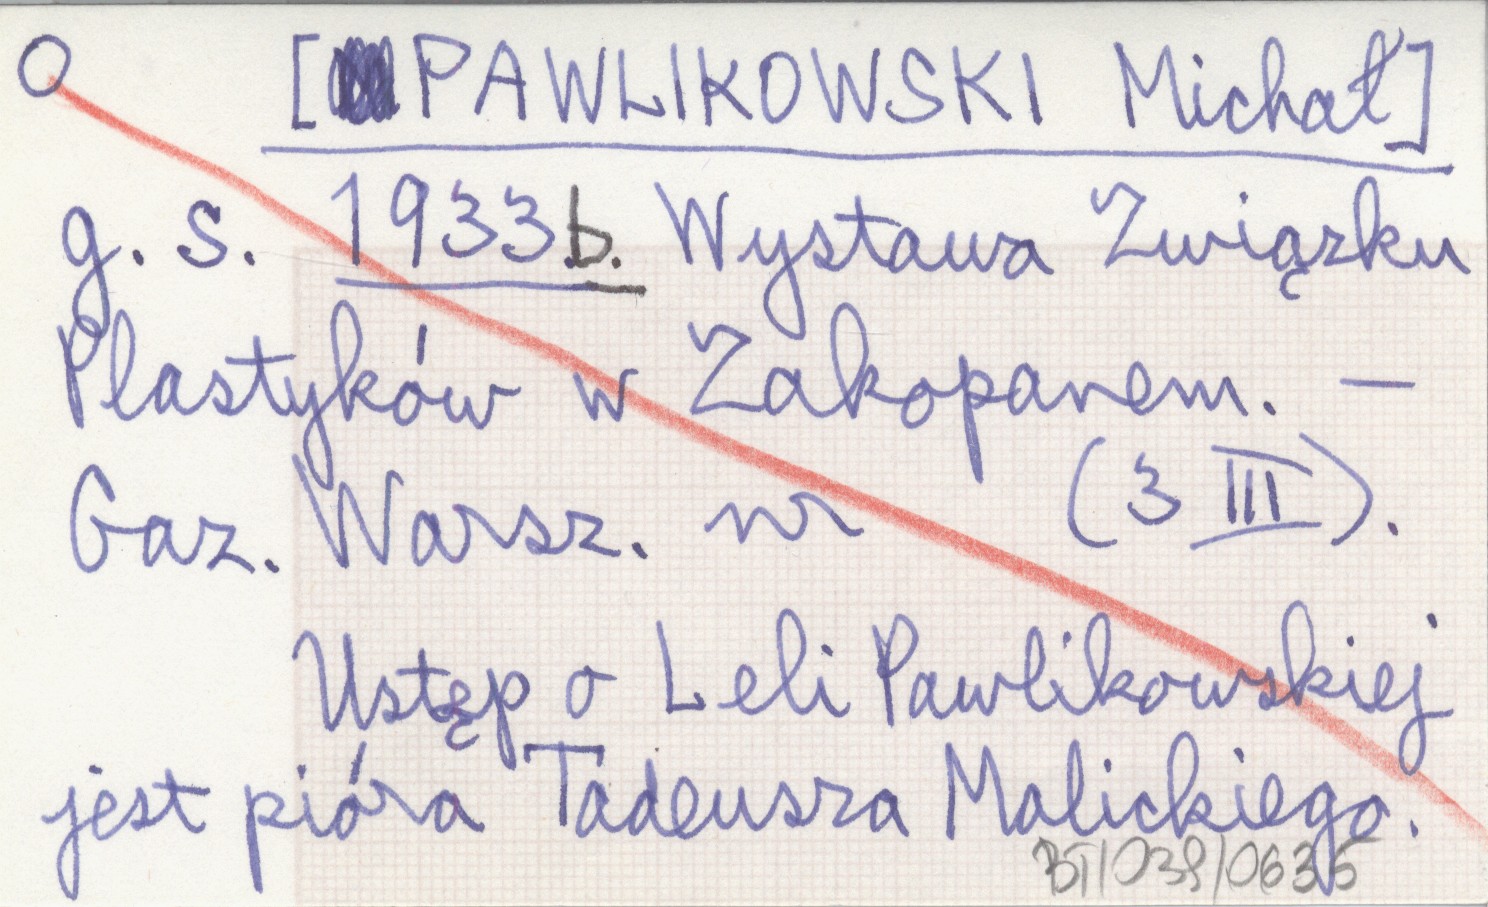 [PAWLIKOWSKI Michał]
g. s. 1933b. Wystawa Związku
Plastyków w Zakopanem. —
Gaz. Warsz. nr (3 III).
Ustęp o Leli Pawlikowskiej
jest pióra Tadeusza Malickiego.
BT/039/0635